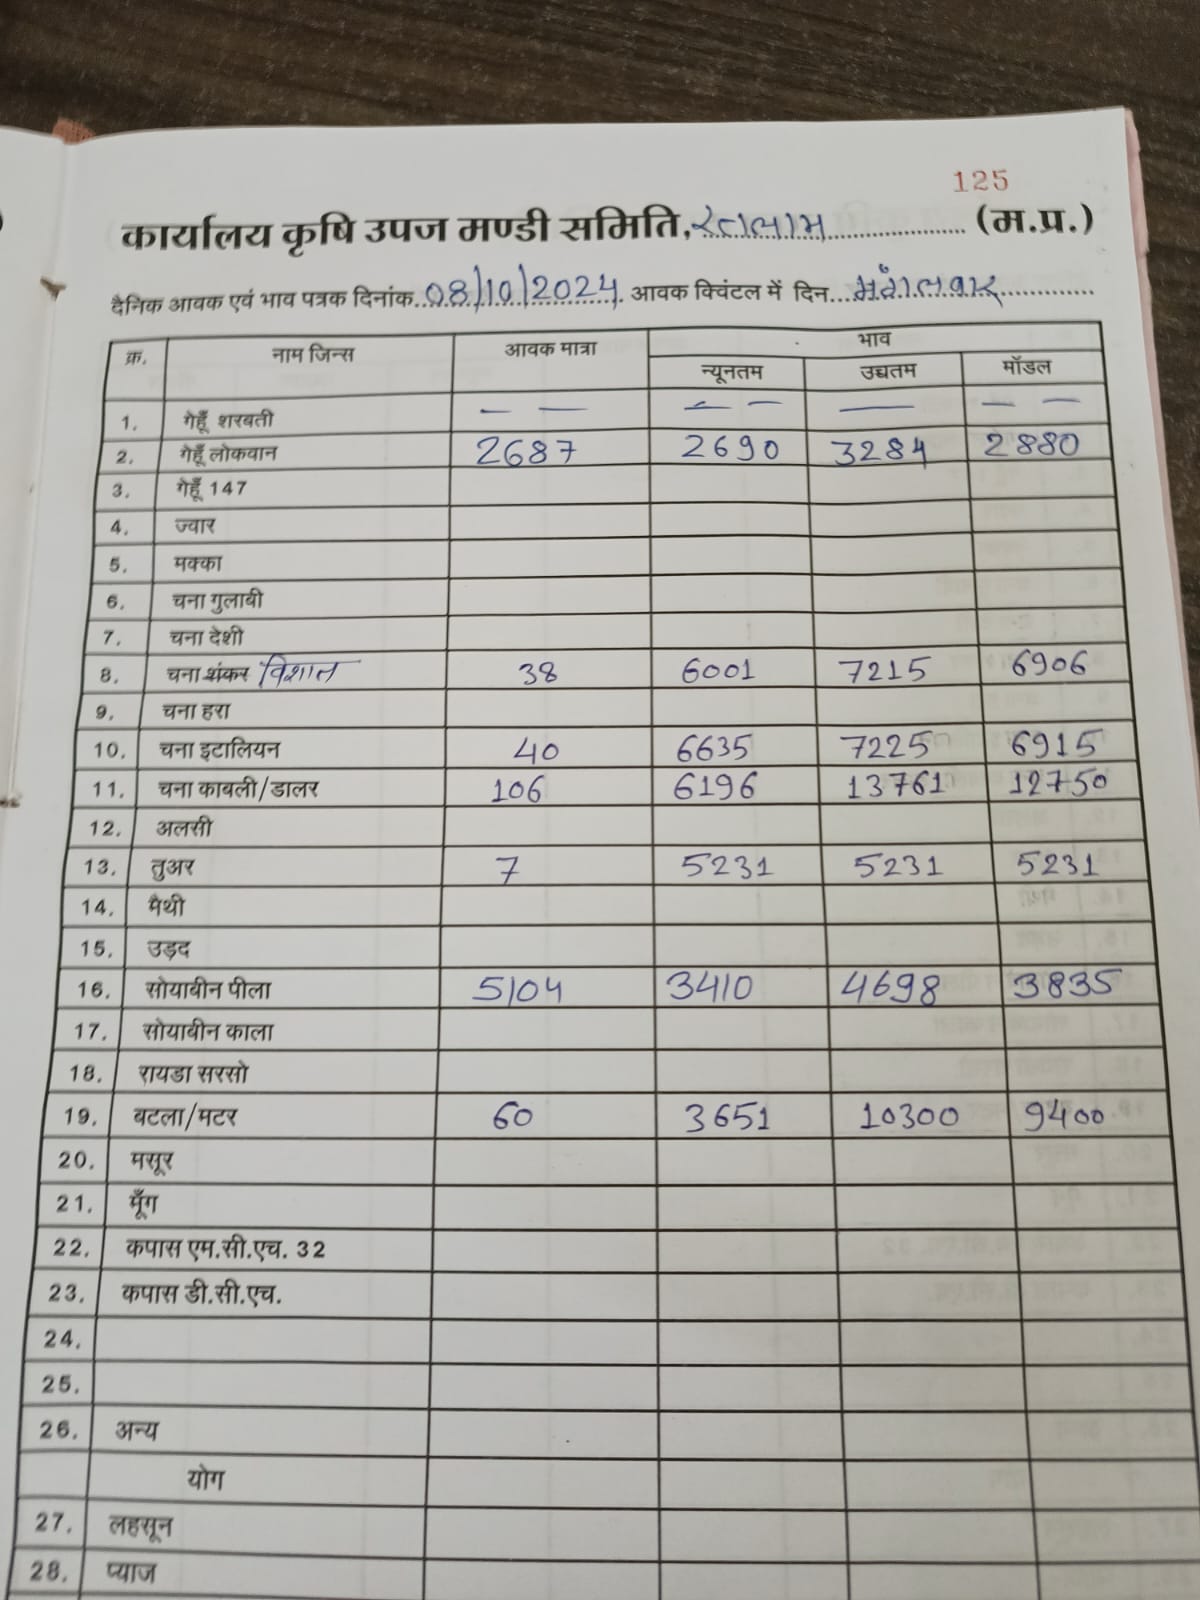 125
कार्यालय कृषि उपज मण्डी समिति, रतलाम (म.प्र.)
दैनिक आवक एवं भाव पत्रक दिनांक 08/10/2024 आवक क्विंटल में दिन मंगलवार
क्र. नाम जिन्स आवक मात्रा भाव
न्यूनतम उच्चतम मॉडल
1. गेहूँ शरबती — — — — — — —
2. गेहूँ लोकवान 2687 2690 3284 2880
3. गेहूँ 147
4. ज्वार
5. मक्का
6. चना गुलाबी
7. चना देशी
8. चना शंकर विशाल 38 6001 7215 6906
9. चना हरा
10. चना इटालियन 40 6635 7225 6915
11. चना काबली/डालर 106 6196 13761 12750
12. अलसी
13. तुअर 7 5231 5231 5231
14. मैथी
15. उड़द
16. सोयाबीन पीला 5104 3410 4698 3835
17. सोयाबीन काला
18. रायडा सरसो
19. बटला/मटर 60 3651 10300 9400
20. मसूर
21. मूँग
22. कपास एम.सी.एच. 32
23. कपास डी.सी.एच.
24.
25.
26. अन्य
योग
27. लहसून
28. प्याज